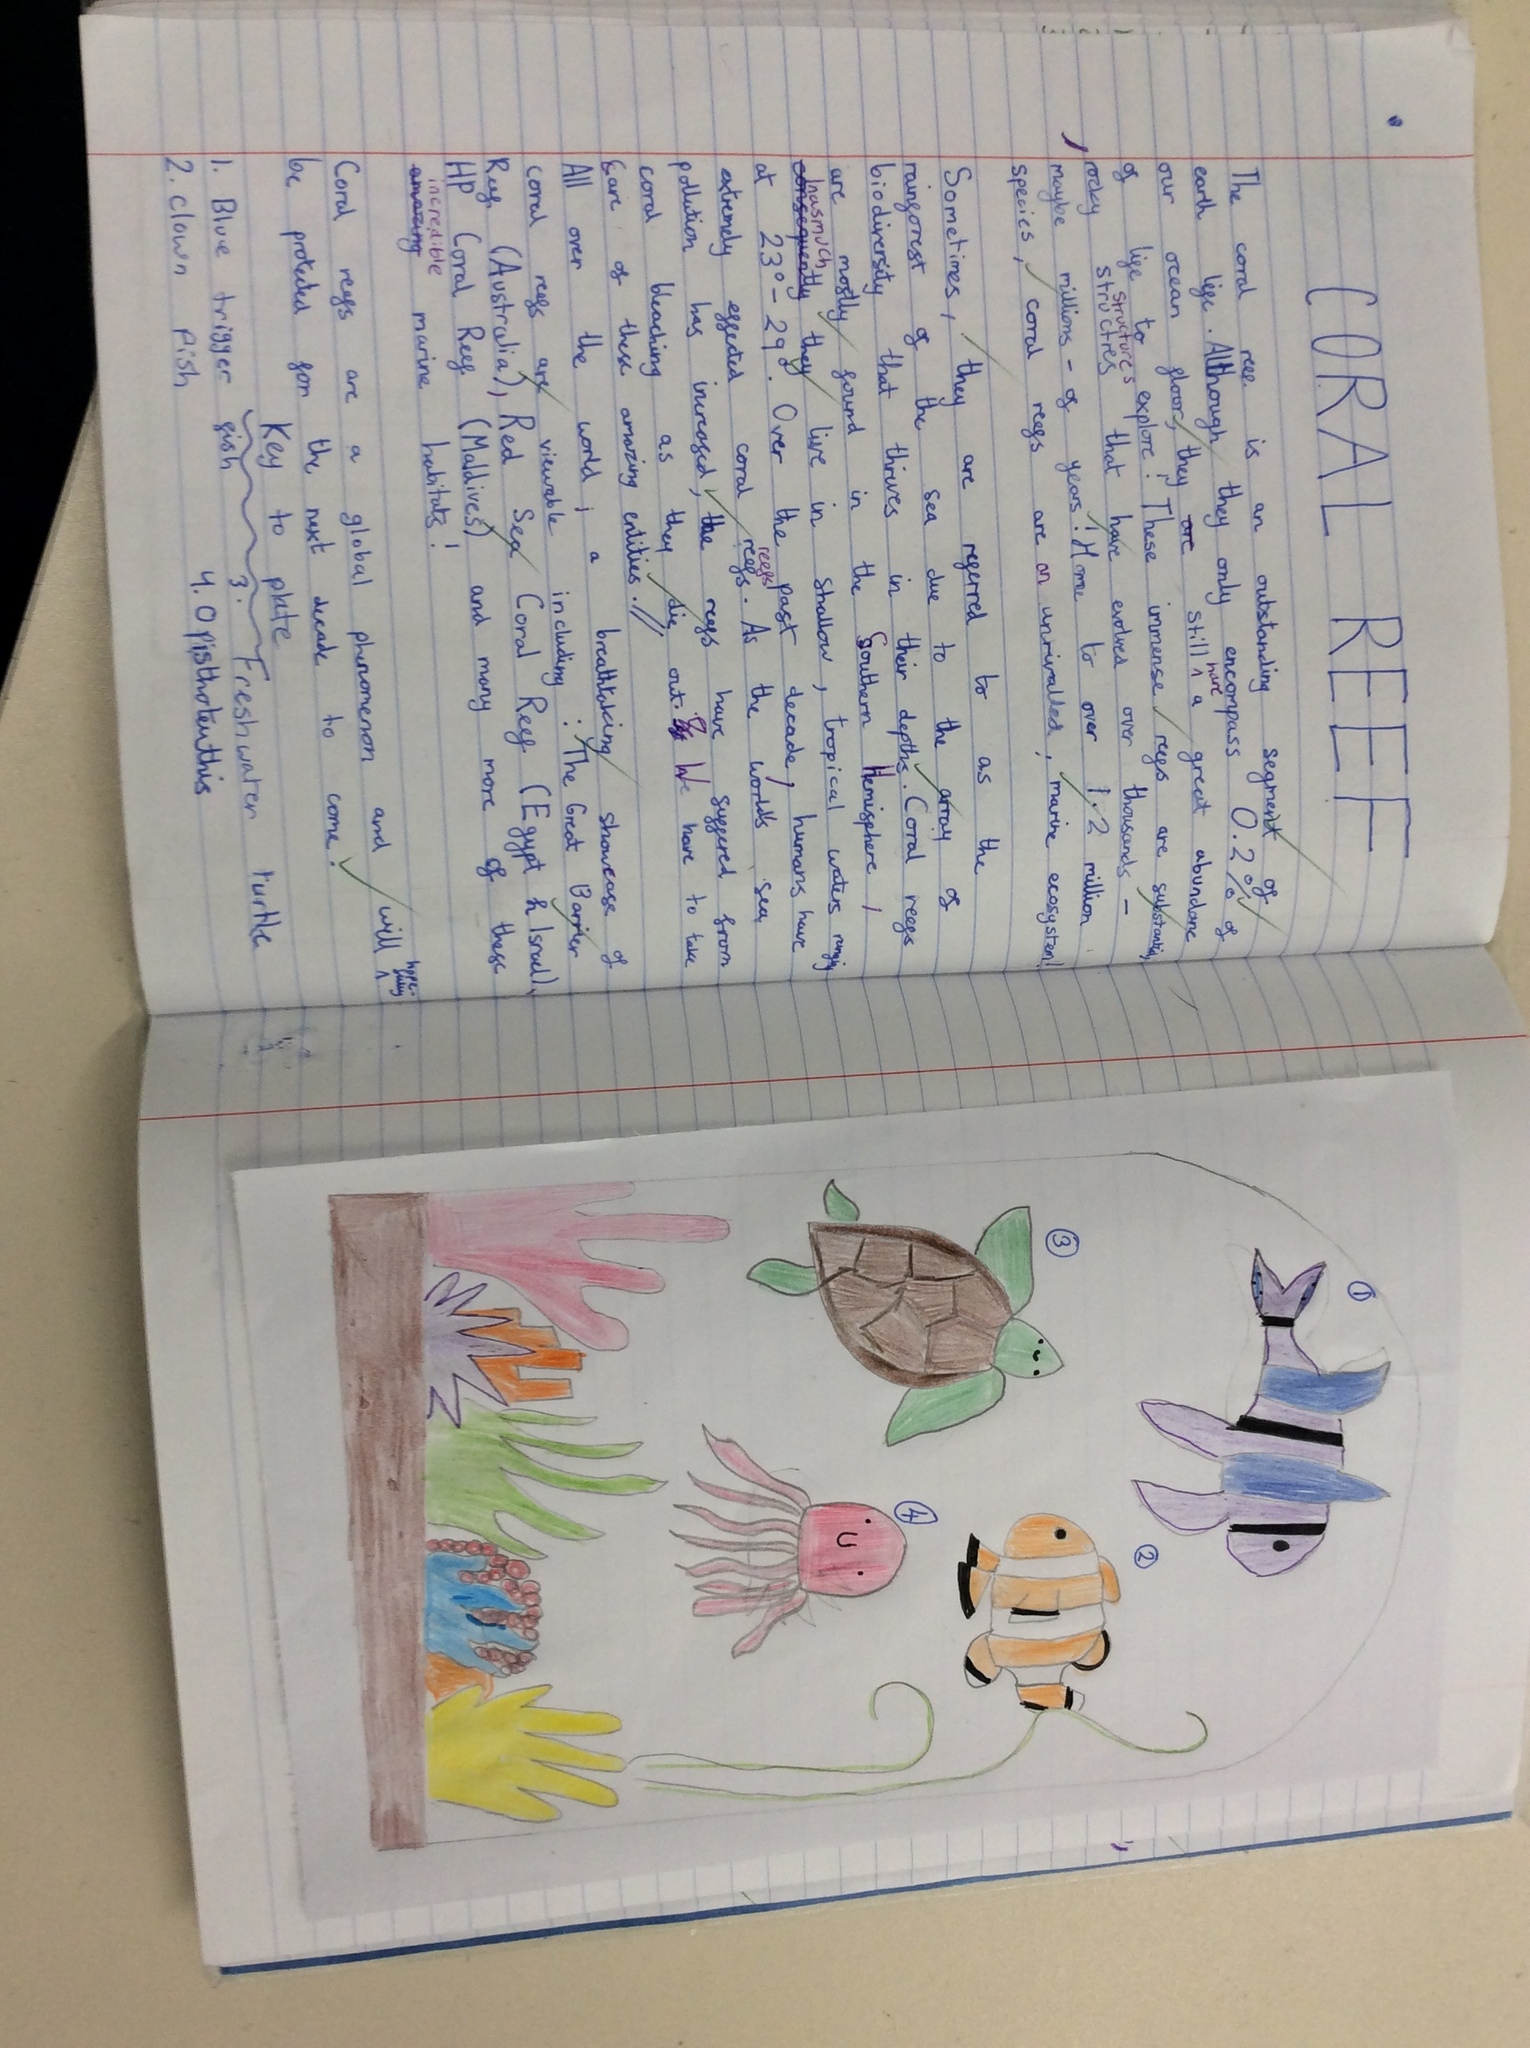 CORAL REEF
The coral ree is an outstanding segment of
earth life. Although they only encompass 0.2% of
our ocean floor, they are still have a great abundance
of life to explore! These immense reefs are substantial,
rocky structres structures that have evolved over thousands -
maybe millions - of years! Home to over 1.2 million
species, coral reefs are an unrivalled, marine ecosystem!
Sometimes, they are referred to as the
rainforest of the sea due to the array of
biodiversity that thrives in their depths. Coral reefs
are mostly found in the Southern Hemisphere,
consequently inasmuch they live in shallow, tropical waters ranging
at 23° - 29°. Over the past decade, humans have
extremely effected coral reefs reefs. As the worlds sea
pollution has increased, the reefs have suffered from
coral bleaching as they die out. We have to take
care of these amazing entities.//
All over the world, a breathtaking showcase of
coral reefs are viewable including: The Great Barrier
Reef (Australia), Red Sea Coral Reef (Egypt & Israel),
HP Coral Reef (Maldives) and many more of these
amazing incredible marine habitats!
Coral reefs are a global phenomenon and will hopefully
be proteted for the next decade to come!
Key to plate
1. Blue trigger fish
2. clown fish
3. Freshwater turtle
4. Opisthoteuthis
1
2
3
4